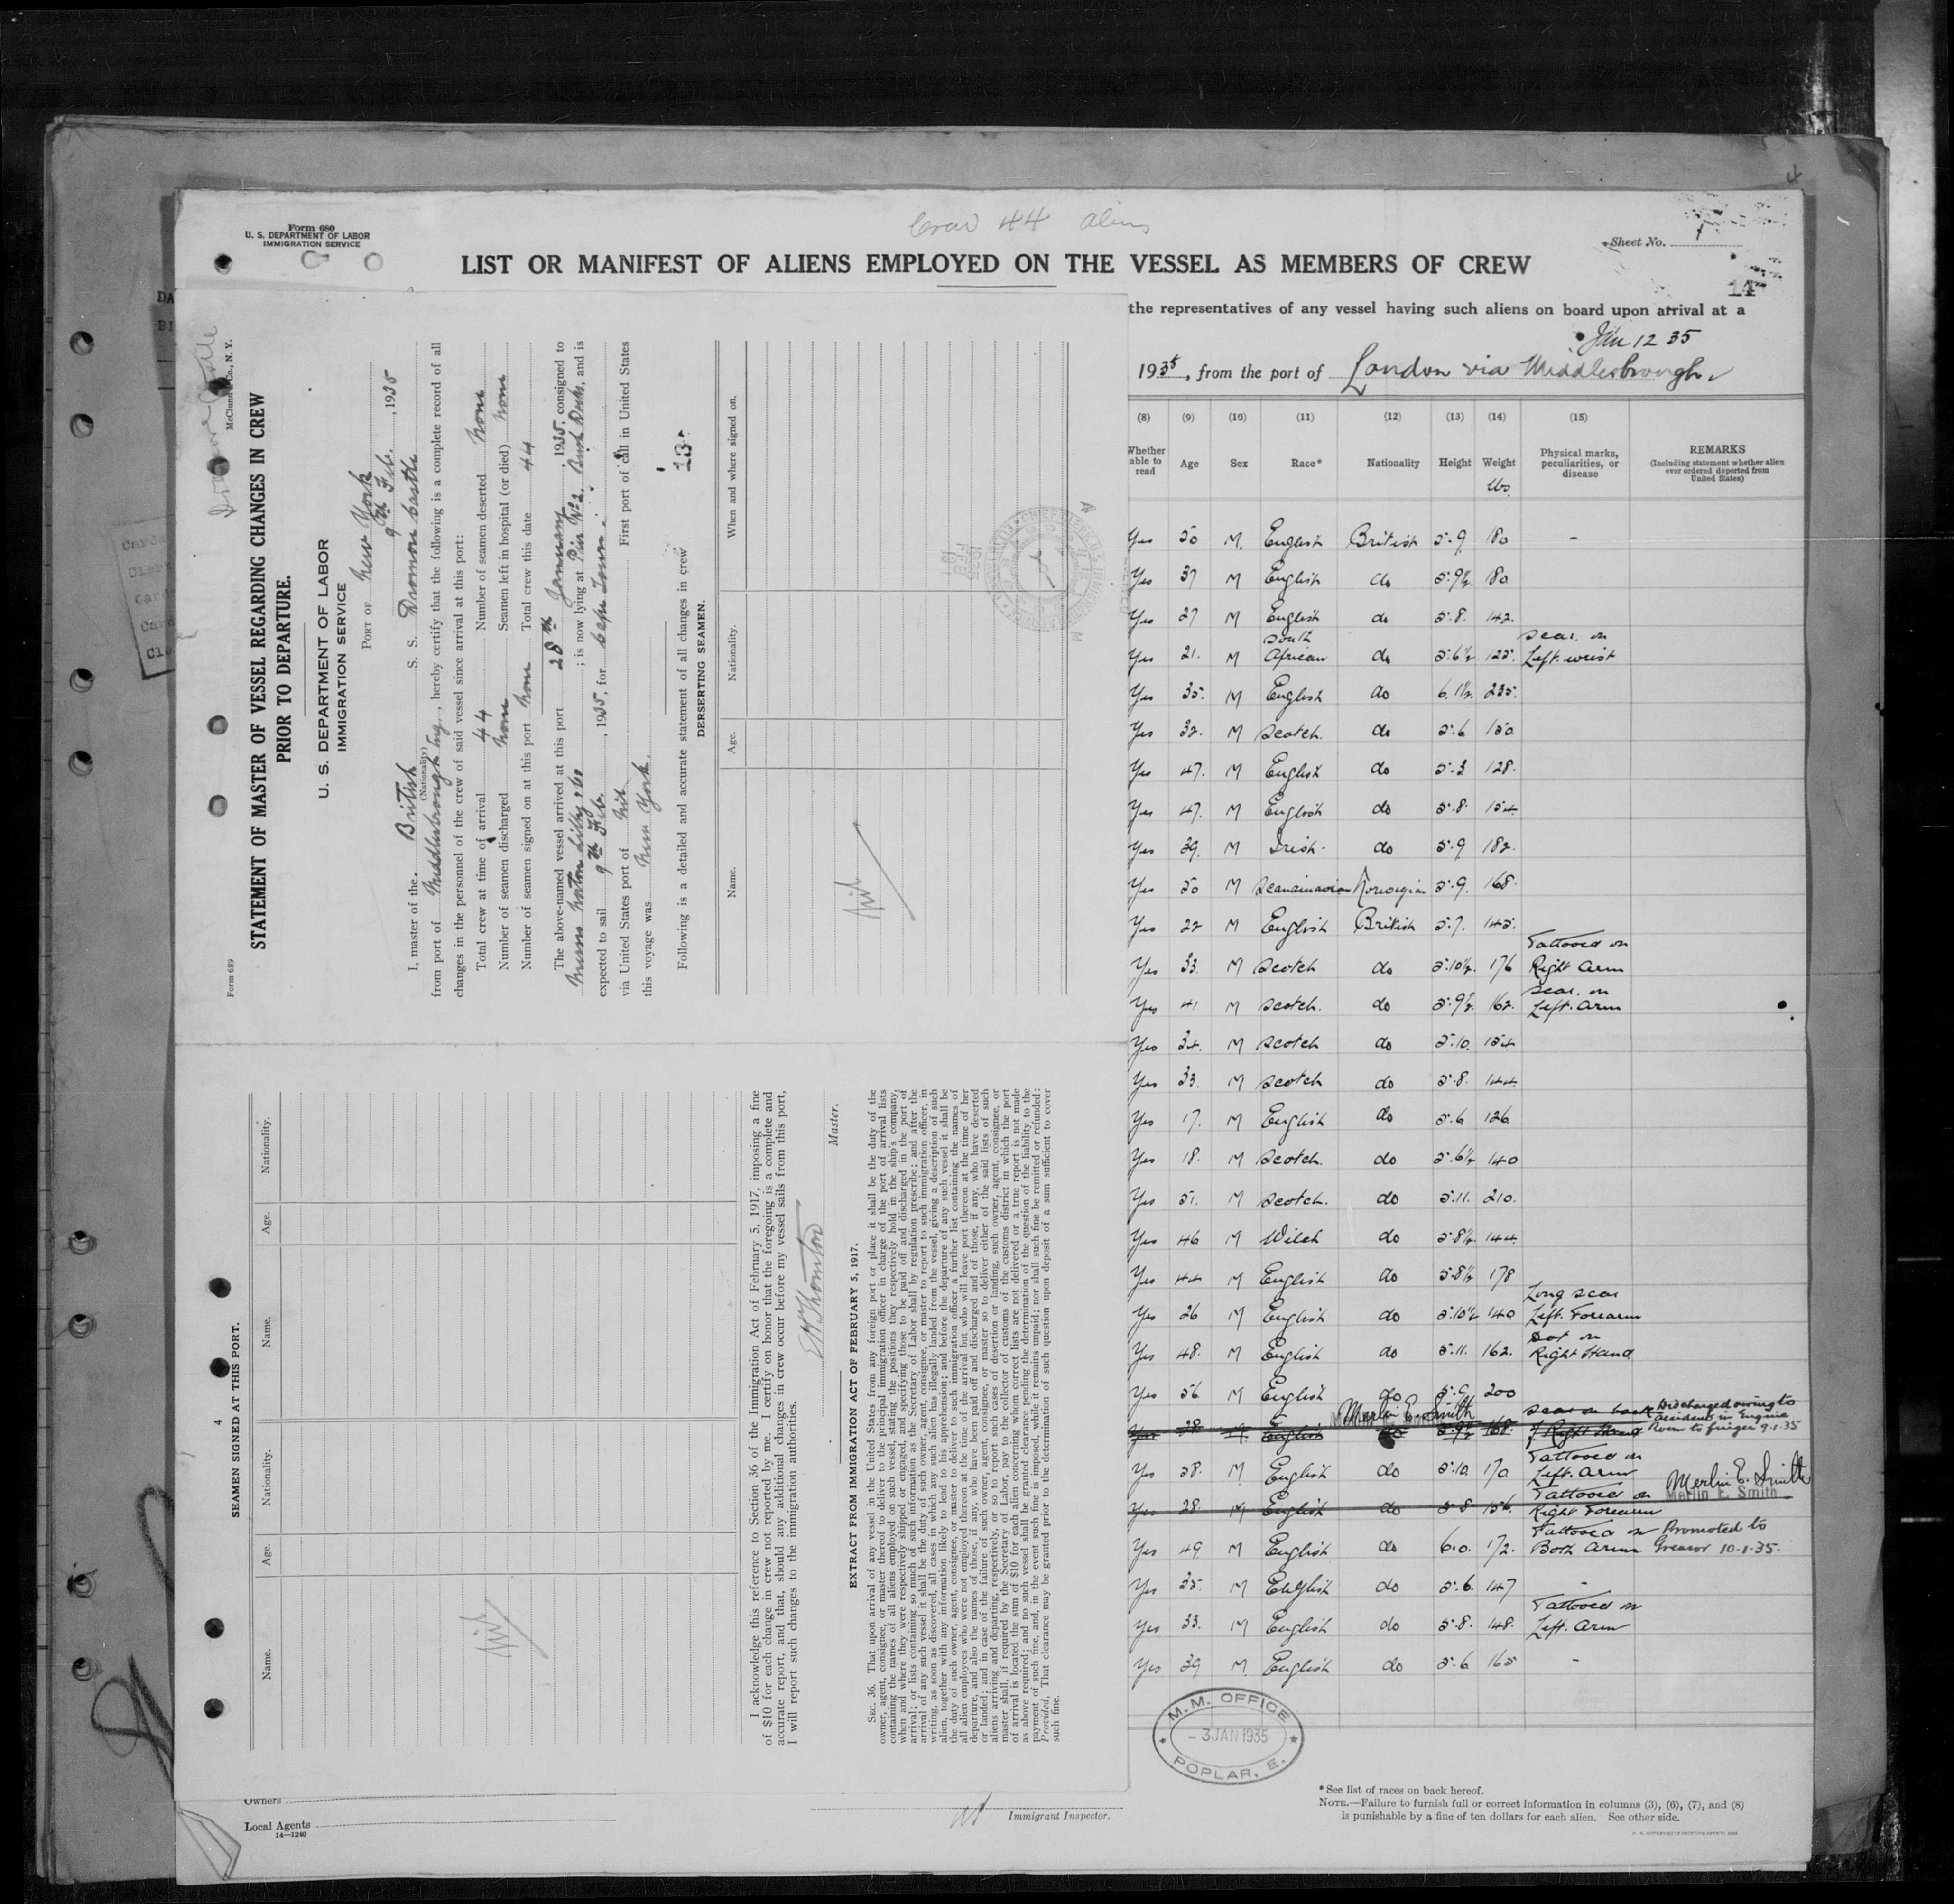 Form 680
U. S. DEPARTMENT OF LABOR
IMMIGRATION SERVICE
Crew 44 aliens
Sheet No. 1
LIST OR MANIFEST OF ALIENS EMPLOYED ON THE VESSEL AS MEMBERS OF CREW
14
the representatives of any vessel having such aliens on board upon arrival at a
Jan 12 35
1935, from the port of London via Middlesbrough
(8) (9) (10) (11) (12) (13) (14) (15)
Whether able to read Age Sex Race* Nationality Height Weight lbs. Physical marks, peculiarities, or disease REMARKS (Including statement whether alien ever ordered deported from United States)
Yes 50 M. English British 5.9 180 -
Yes 37 M English do 5.9½ 180
Yes 27 M English do 5.8. 142.
Yes 21. M South African do 5.6½ 125. Scar. on Left. wrist
Yes 35. M English do 6.1½ 235.
Yes 32. M Scotch. do 5.6 150
Yes 47. M English do 5.3 128.
Yes 47. M English do 5.8. 154.
Yes 39. M Irish. do 5.9 182.
Yes 50 M Scandinavian Norwegian 5.9. 168.
Yes 22 M English British 5.7. 145.
Yes 33. M Scotch do 5.10½. 176 Tattooed on Right Arm
Yes 41 M Scotch. do 5.9½ 162. Scar. on Left. Arm
Yes 34. M Scotch do 5.10. 154
Yes 33. M Scotch do 5.8. 144.
Yes 17. M English do 5.6 126
Yes 18. M Scotch. do 5.6½ 140
Yes 51. M Scotch. do 5.11. 210.
Yes 46 M Welch do 5.8½. 144.
Yes 44 M English do 5.8½ 178
Yes 26 M English do 5.10½ 140 Long scar Left. Forearm
Yes 48. M English do 5.11. 162. on Right Hand
Yes 56 M English do 200
Merlin E. Smith
Yes 28. M. English do 5.9½ 168. Scar on back of Right Hand Discharged owing to accident in Engine Room to finger 9-1-35
Yes 38. M. English do 5.10. 170. Tattooed on Left. Arm
Merlin E. Smith
Merlin E. Smith
Yes 28. M English do 5.8 156. Tattooed on Right Forearm
Yes 49 M English do 6.0. 172. Tattooed on Both Arms Promoted to Greaser 10-1-35.
Yes 25. M. English do 5.6. 147 -
Yes 33. M English do 5.8. 148. Tattooed on Left. Arm
Yes 39 M. English do 5.6 165 -
M. M. OFFICE
- 3 JAN 1935
POPLAR, E.
*See list of races on back hereof.
NOTE.—Failure to furnish full or correct information in columns (3), (6), (7), and (8)
is punishable by a fine of ten dollars for each alien. See other side.
Owners
Local Agents
14—1240
Immigrant Inspector.
Form 689
STATEMENT OF MASTER OF VESSEL REGARDING CHANGES IN CREW
PRIOR TO DEPARTURE.
U. S. DEPARTMENT OF LABOR
IMMIGRATION SERVICE
PORT OF New York
9th Feb. , 1935
I, master of the British S. S. Dromore Castle
(Nationality)
from port of Middlesbrough Eng., hereby certify that the following is a complete record of all
changes in the personnel of the crew of said vessel since arrival at this port:
Total crew at time of arrival 44 Number of seamen deserted None
Number of seamen discharged None Seamen left in hospital (or died) None
Number of seamen signed on at this port None Total crew this date 44
The above-named vessel arrived at this port 28th January, 1935, consigned to
Messrs Norton Lilly & Co ; is now lying at Pier No 2. Bush Docks, and is
expected to sail 9th Feb. , 1935, for Cape Town.
via United States port of Nil First port of call in United States
this voyage was New York.
Following is a detailed and accurate statement of all changes in crew
13
DERSERTING SEAMEN.
Name. Age. Nationality. When and where signed on.
Nil
4
SEAMEN SIGNED AT THIS PORT.
Name. Age. Nationality. Name. Age. Nationality.
Nil
I acknowledge this reference to Section 36 of the Immigration Act of February 5, 1917, imposing a fine
of $10 for each change in crew not reported by me. I certify on honor that the foregoing is a complete and
accurate report, and that, should any additional changes in crew occur before my vessel sails from this port,
I will report such changes to the immigration authorities.
Master.
EXTRACT FROM IMMIGRATION ACT OF FEBRUARY 5, 1917.
SEC. 36. That upon arrival of any vessel in the United States from any foreign port or place it shall be the duty of the
owner, agent, consignee, or master thereof to deliver to the principal immigration officer in charge of the port of arrival lists
containing the names of all aliens employed on such vessel, stating the positions they respectively hold in the ship's company,
when and where they were respectively shipped or engaged, and specifying those to be paid off and discharged in the port of
arrival; or lists containing so much of such information as the Secretary of Labor shall by regulation prescribe; and after the
arrival of any such vessel it shall be the duty of such owner, agent, consignee, or master to report to such immigration officer, in
writing, as soon as discovered, all cases in which any such alien has illegally landed from the vessel, giving a description of such
alien, together with any information likely to lead to his apprehension; and before the departure of any such vessel it shall be
the duty of such owner, agent, consignee, or master to deliver to such immigration officer a further list containing the names of
all alien employees who were not employed thereon at the time of the arrival but who will leave port thereon at the time of her
departure, and also the names of those, if any, who have been paid off and discharged and of those, if any, who have deserted
or landed; and in case of the failure of such owner, agent, consignee, or master so to deliver either of the said lists of such
aliens arriving and departing, respectively, or so to report such cases of desertion or landing, such owner, agent, consignee, or
master shall, if required by the Secretary of Labor, pay to the collector of customs of the customs district in which the port
of arrival is located the sum of $10 for each alien concerning whom correct lists are not delivered or a true report is not made
as above required; and no such vessel shall be granted clearance pending the determination of the question of the liability to the
payment of such fine, and, in the event such fine is imposed, while it remains unpaid; nor shall such fine be remitted or refunded:
Provided, That clearance may be granted prior to the determination of such question upon deposit of a sum sufficient to cover
such fine.